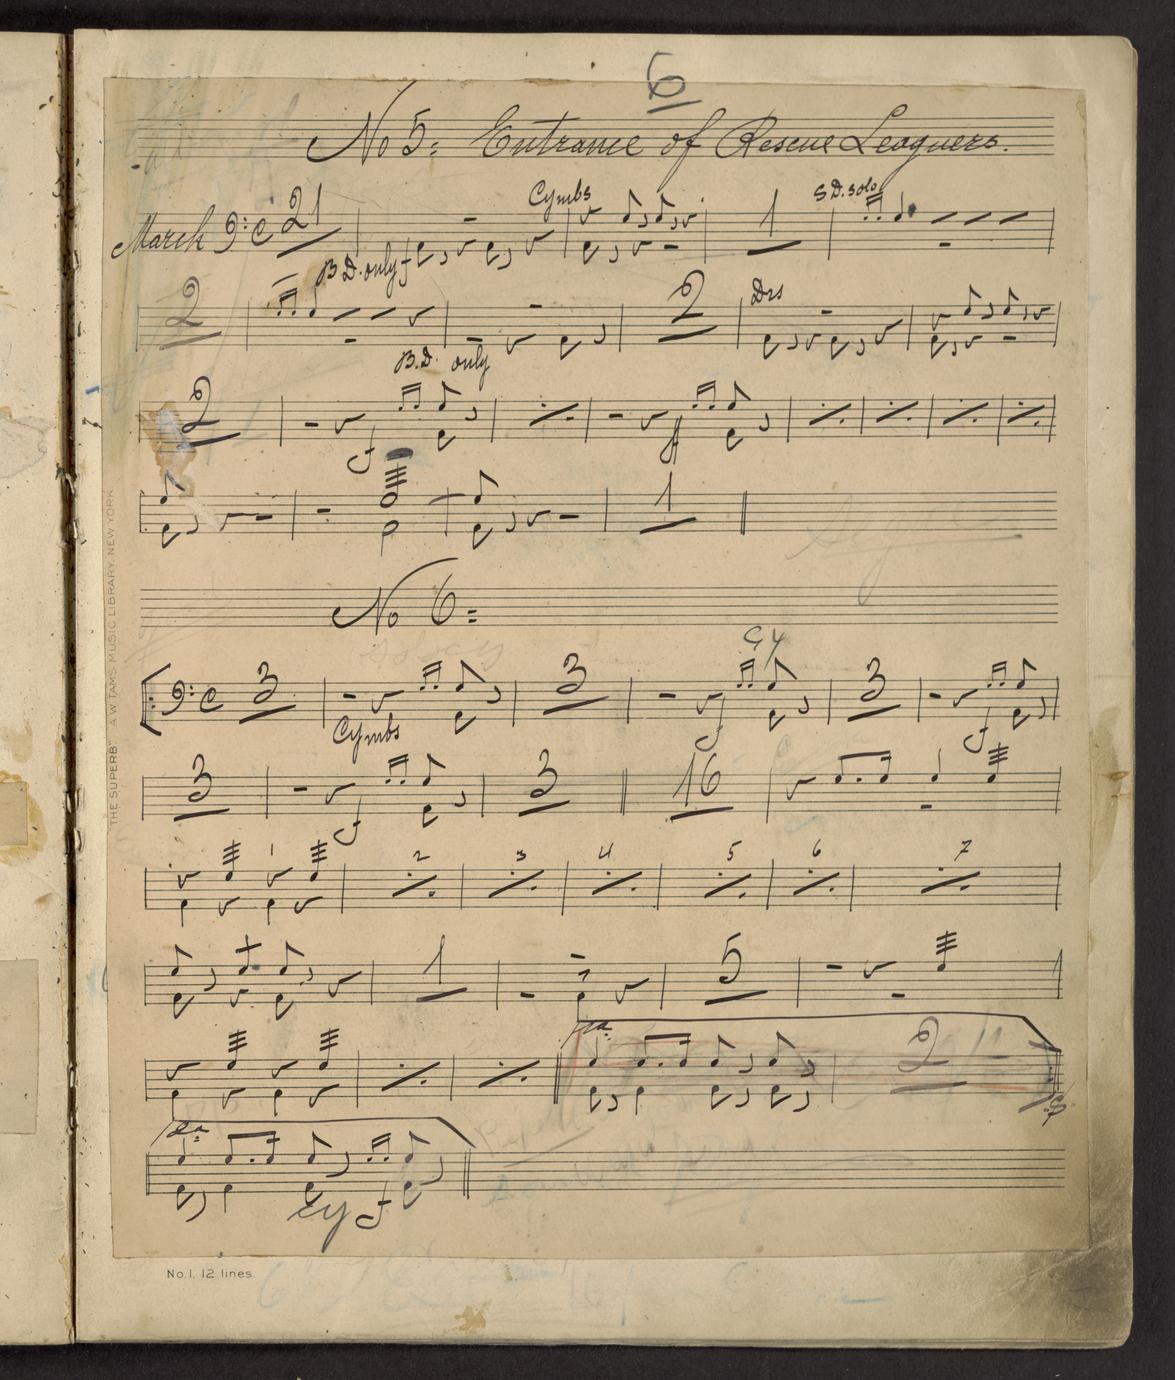 6
No 5: Entrance of Rescue Leaguers.
Cymbs S.D. solo
March 21 1
B.D. only f
2 2 Drs
B.D. only
2
f ff
1
No 6:
Cy
3 3 3
Cymbs f f
3 3 16
f
1 2 3 4 5 6 7
1 5
1a 2
2a
Cy f
"THE SUPERB" A.W. TAMS MUSIC LIBRARY, NEW YORK
No. 1. 12 lines